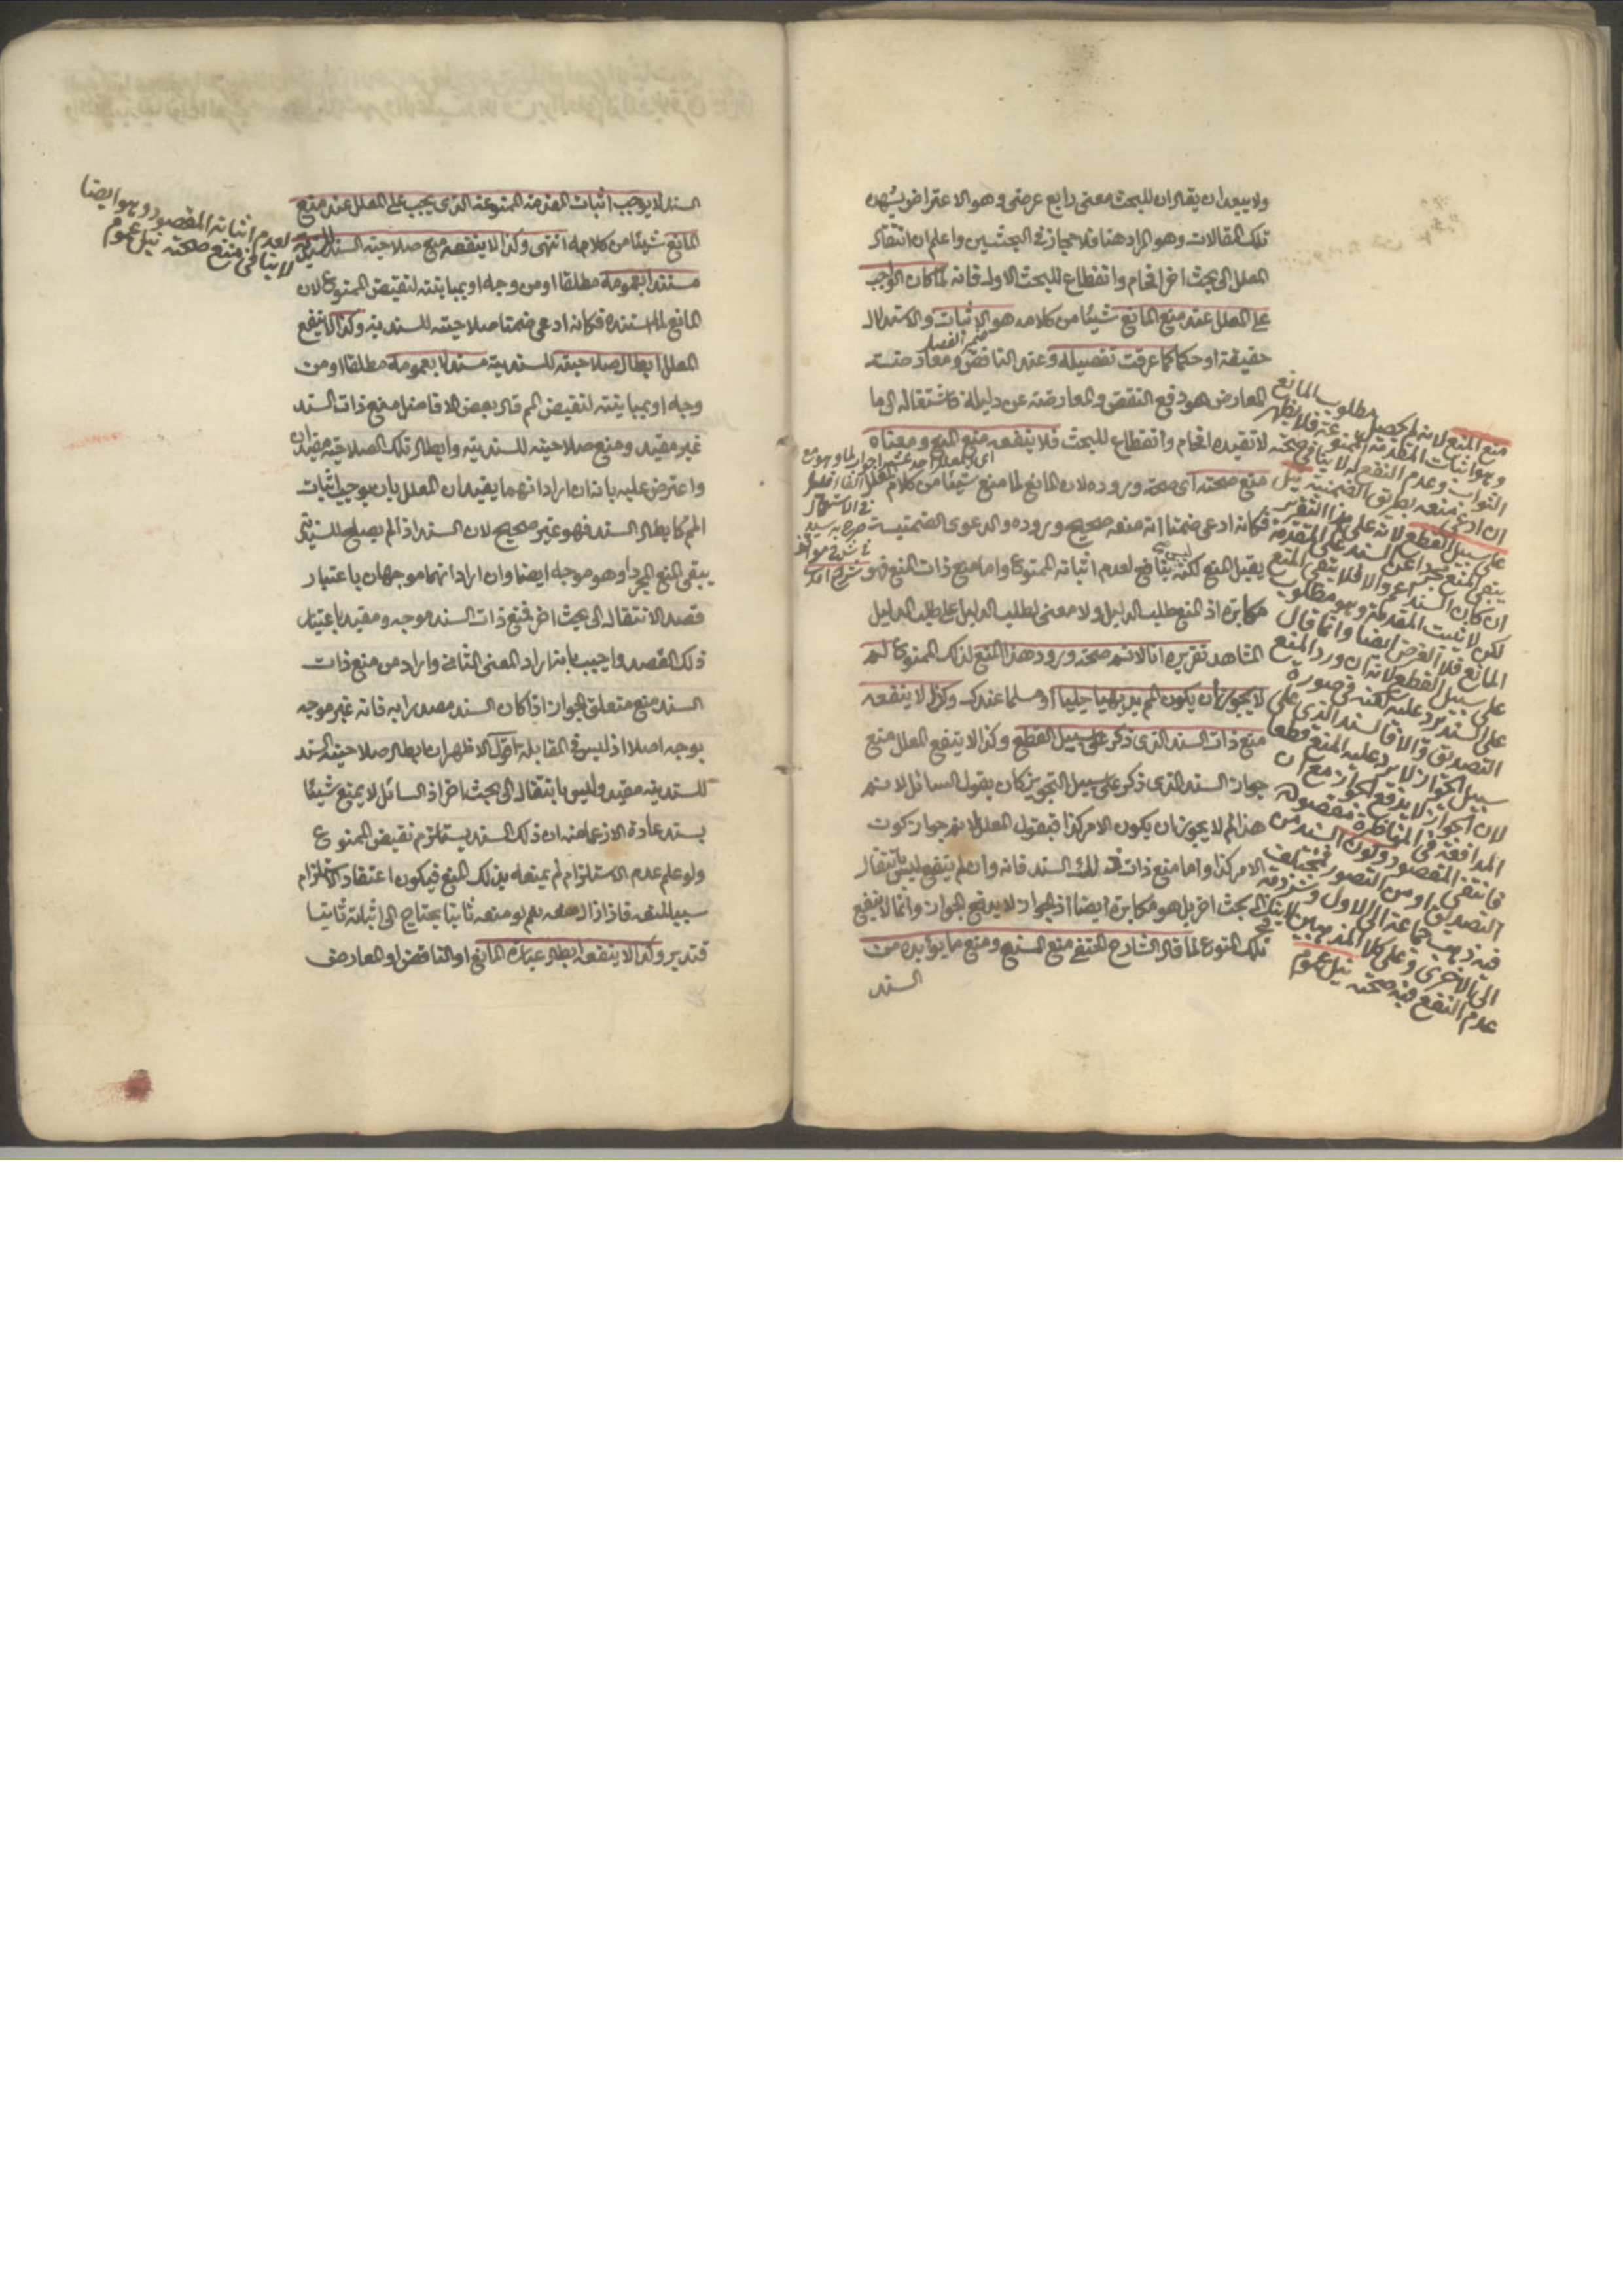 ولا يبعد ان يقال ان للبحث معنى رابع عرضى وهو الاعتراض يشهد
تلك المقالات وهو المراد هنا فلا مجاز فى البحثين واعلم ان انتقال
المعلل الى بحث اخر افحام وانقطاع للبحث الاول فانه لما كان الواجب
على المعلل عند منع المانع شيئا من كلامه هو الاثبات والاستدلال
حقيقة او حكما كما عرفت تفصيله وعند الناقض ومعارضته
المعارض هو دفع النقض والمعارضة عن دليله فاشتغاله الى ما
لا تفيده افحام وانقطاع للبحث فلا ينفعه منع المنع ومعناه
منع صحته اى صحة وروده لان المانع لما منع شيئا من كلام المعلل
فكانه ادعى ضمنا انه منعه صحيح وروده والدعوى الضمنية
يقبل المنع لكنه ليس بنافع لعدم اثباته الممنوع واما منع ذات المنع فهو
مكابرة اذ المنع طلب الدليل ولا معنى لطلب الدليل على طلب الدليل
المشاهد تقريره انا لا نسلم صحة ورود هذا المنع لذلك الممنوع لم
لا يجوز ان يكون الم بديهيا جليا او مسلما عندك وكذا لا ينفعه
منع ذات السند الذى ذكر على سبيل القطع وكذا لا ينفع المعلل منع
جواز السند الذى ذكر على سبيل التجويز كان يقول السائل لا نسلم
هذا لم لا يجوز ان يكون الامر كذا فيقول المعلل لا نسلم جواز كون
الامر كذا واما منع ذات ذلك السند فانه وان لم ينفع ليس بانتقال
الى بحث اخر بل هو مكابرة ايضا اذ الجواز لا يدفع الجواز وانما لا ينفع
تلك المنوع لما قال الشارح الحنفى منع المنع ومنع ما يؤيده من
السند
منع المنع لانه لم يحصل مطلوب المانع
وهو اثبات المقدمة الممنوعة فلا يظهر
على سبيل القطع لانه على هذا التقدير
ينفى المنع مجردا عن السند
ان كان السند اعم والا فلا يبقى المنع
لكن لا يثبت المقدمة وهو مطلوب
المانع فلا الغرض ايضا وانما قال
على سبيل القطع لانه ان ورد المنع
على السند يرد عليه لكنه فى صورة
التصديق والا فالسند الذى على
سبيل الجواز لا يرد عليه المنع قطعا
لان الجواز لا يدفع الجواز مع ان
المدافعة فى المناظرة مقصودة
فانتفى المقصود وكون السند من
التصديق او من التصور مختلف
فيه ذهب جماعة الى الاول وشرذمة
الى الاخرى وعلى كلا المذهبين
عدم النفع فيه صحته نيل عموم
السند لا يوجب اثبات المقدمة الممنوعة الذى يجب على المعلل عند منع
المانع شيئا من كلامه انتهى وكذا لا ينفعه منع صلاحية السند للسندية
مستندا بعمومه مطلقا او من وجه او بمباينته لنقيض الممنوع لان
المانع لما استنده فكانه ادعى ضمنا صلاحيته للسندية وكذا لا ينفع
المعلل ابطال صلاحيته للسندية مستدلا بعمومه مطلقا او من
وجه او بمباينته لنقيض الم قال بعض الافاضل منع ذات السند
غير مفيد ومنع صلاحيته للسندية وابطال تلك الصلاحية مفيدان
واعترض عليه بانه ان اراد انهما يفيدان المعلل بان يوجب اثبات
الم كابطال السند فهو غير صحيح لان السند اذا لم يصلح للسندية
يبقى المنع المجرد وهو موجه ايضا وان اراد انهما موجهان باعتبار
قصد الانتقال الى بحث اخر فمنع ذات السند موجه ومفيد باعتبار
ذلك القصد واجيب بانه اراد المعنى الثانى واراد من منع ذات
السند منع متعلق الجواز اذا كان السند مصدرا به فانه غير موجه
بوجه اصلا اذ ليس فى المقابلة اقول الاظهر ان ابطال صلاحية السند
للسندية مفيد وليس بانتقال الى بحث اخر اذ السائل لا يمنع شيئا
بسند عادة الا زعما منه ان ذلك السند يستلزم نقيض الممنوع
ولو علم عدم الاستلزام لم يمنعه بذلك المنع فيكون اعتقاد الاستلزام
سببا لمنعه فاذا زال منعه نعم لو منعه ثانيا يحتاج الى اثباته ثانيا
فتدبر وكذا لا ينفعه ابطال عبارة المانع او الناقض او المعارض
لعدم اثباته المقصود وهو ايضا
لا ينافى منع صحته نيل عموم